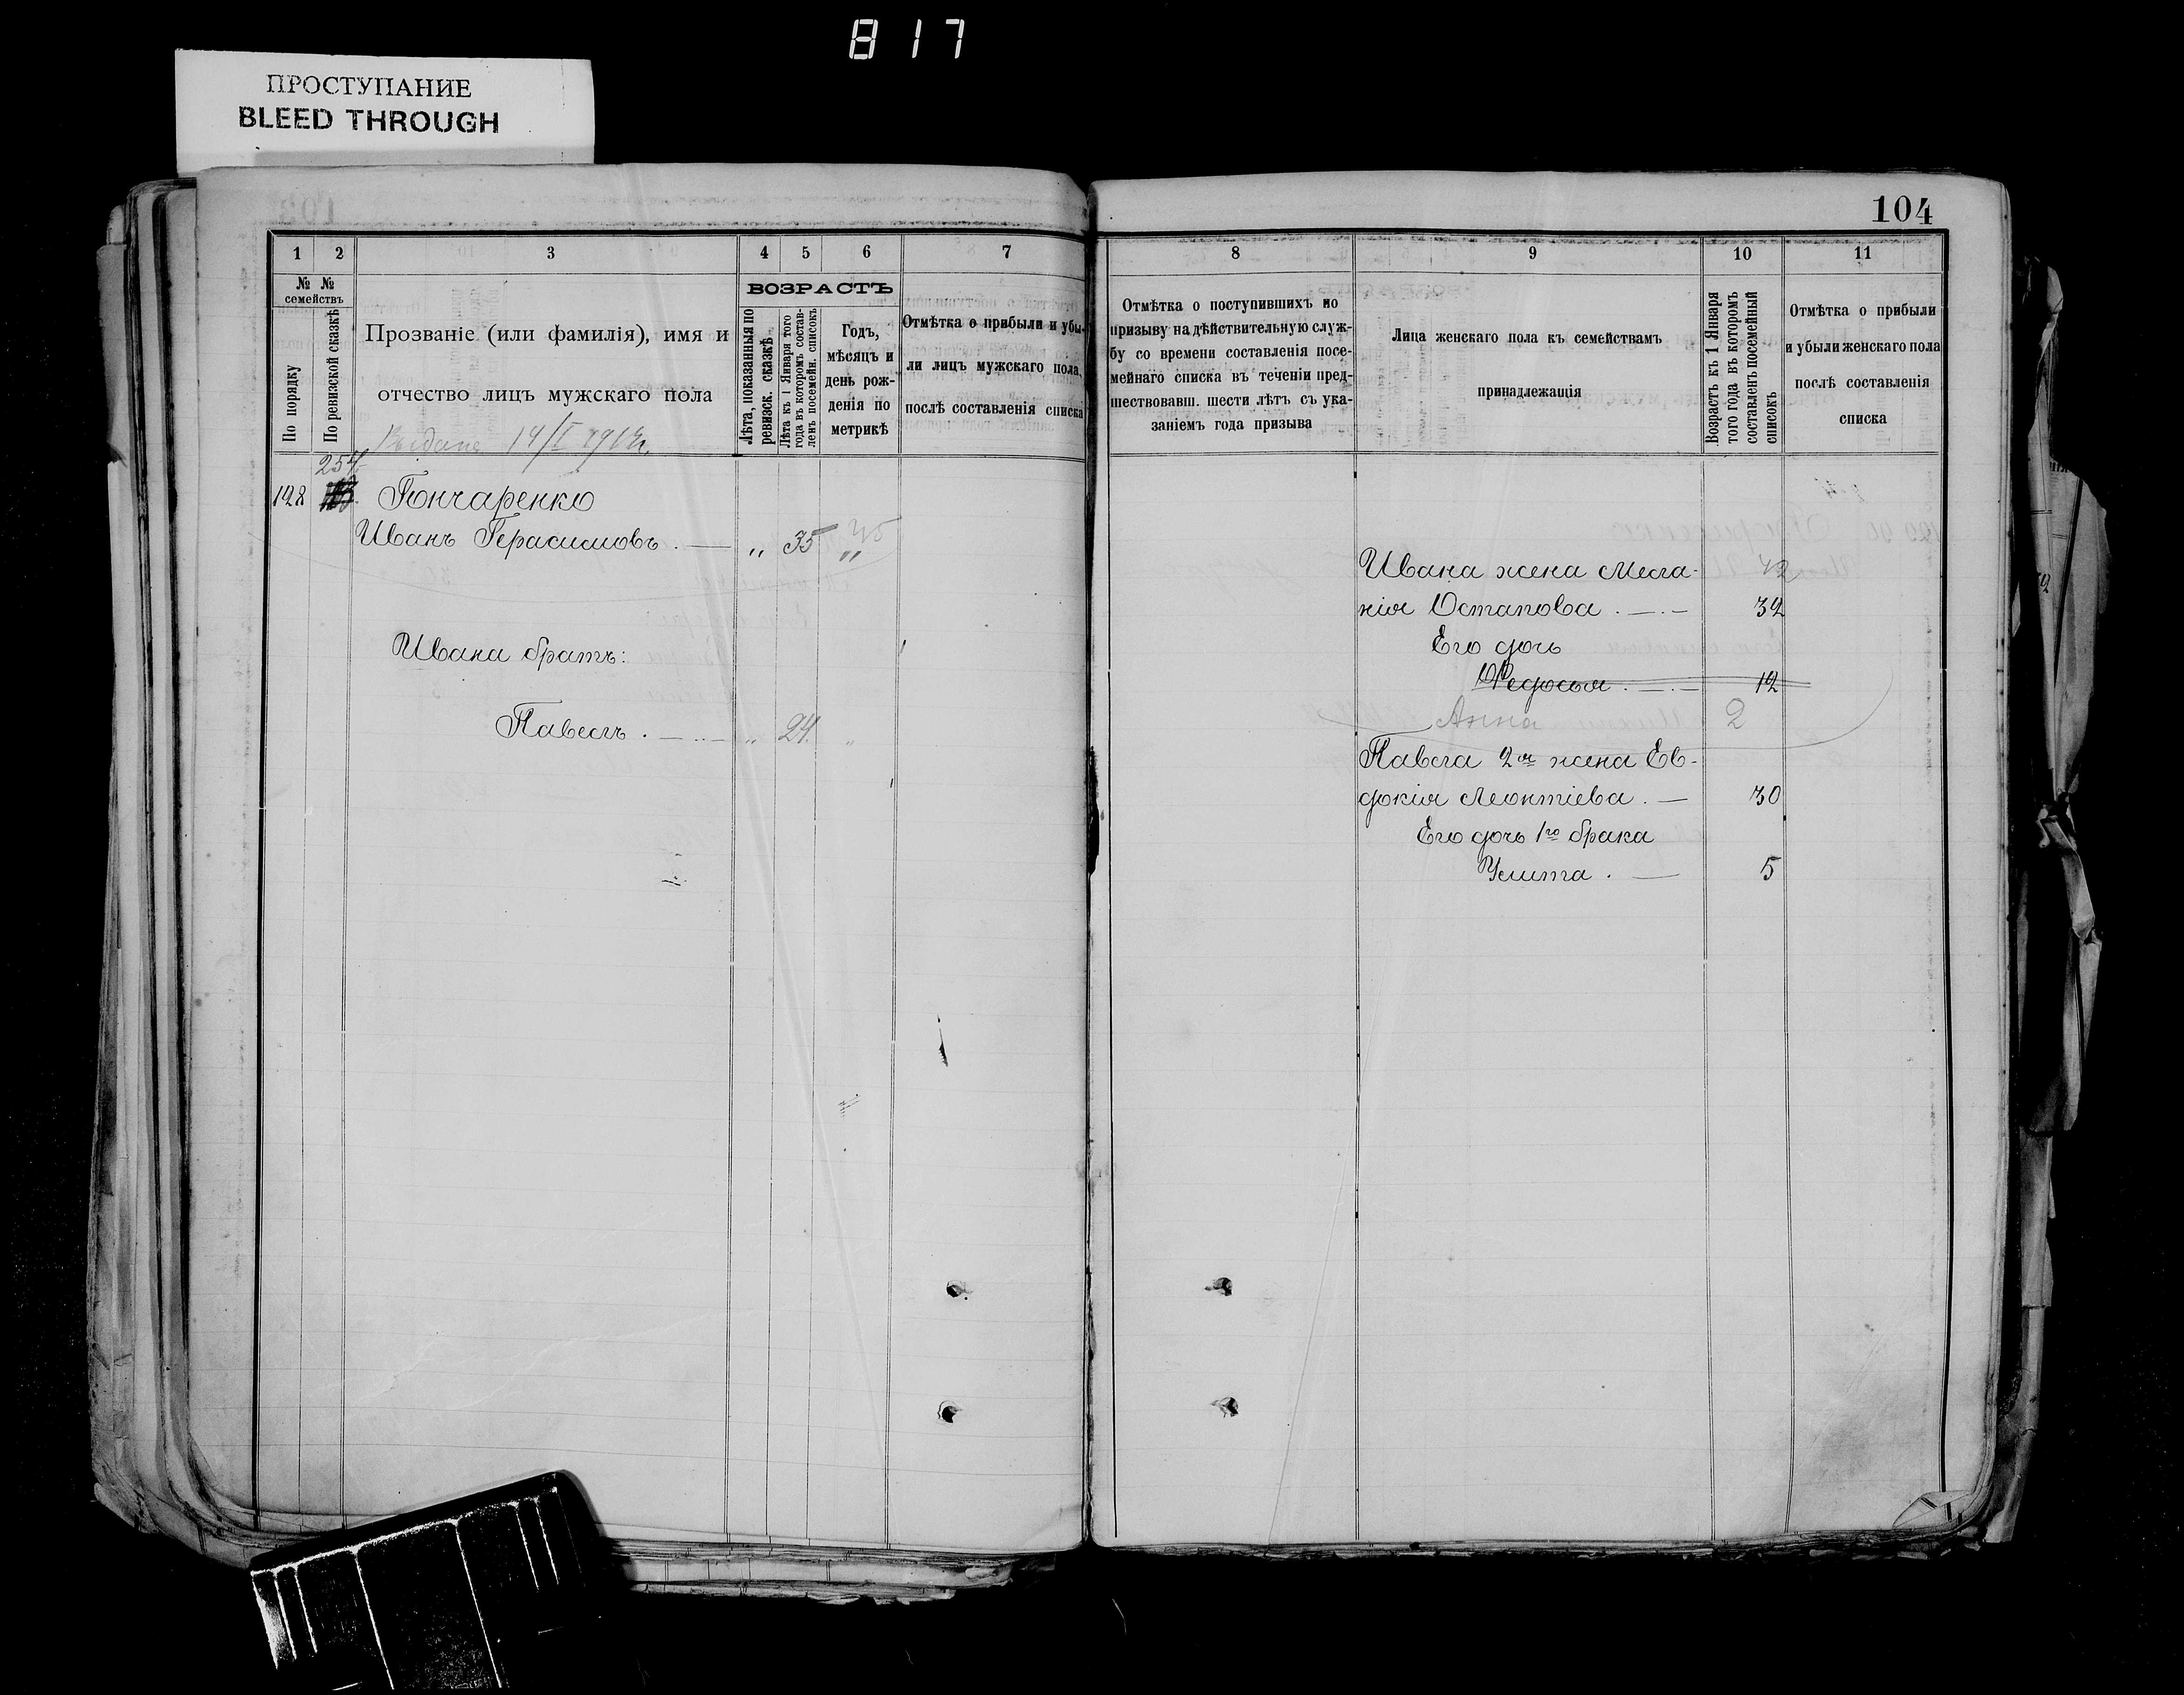 817
ПРОСТУПАНИЕ
BLEED THROUGH
104
1 2 3 4 5 6 7
№ № семействъ
По порядку
По ревизской сказкѣ
Прозваніе (или фамилія), имя и
отчество лицъ мужскаго пола
ВОЗРАСТЪ
Лѣта, показанныя по
ревизск. сказкѣ
Лѣта къ 1 Января того
года въ которомъ состав-
ленъ посемейн. списокъ
Годъ,
мѣсяцъ и
день рож-
денія по
метрикѣ
Отмѣтка о прибыли и убы-
ли лицъ мужскаго пола,
послѣ составленія списка
14/I
254
128 Гончаренко
Иванъ Герасимовъ . — „ 35 „
45
Ивана братъ:
Павелъ . — „ 24. „
8 9 10 11
Отмѣтка о поступившихъ по
призыву на дѣйствительную служ-
бу со времени составленія посе-
мейнаго списка въ теченіи пред-
шествовавш. шести лѣтъ съ ука-
заніемъ года призыва
Лица женскаго пола къ семействамъ
принадлежащія
Возрастъ къ 1 Января
того года въ которомъ
составленъ посемейный
списокъ
Отмѣтка о прибыли
и убыли женскаго пола
послѣ составленія
списка
Ивана жена Мела- 42
нія Остапова . — 32
Его дочь
Федосья . — 12
Анна 2
Павла 2ая жена Ев-
докія Леонтіева . — 30
Его дочь 1го брака
Улита . — 5